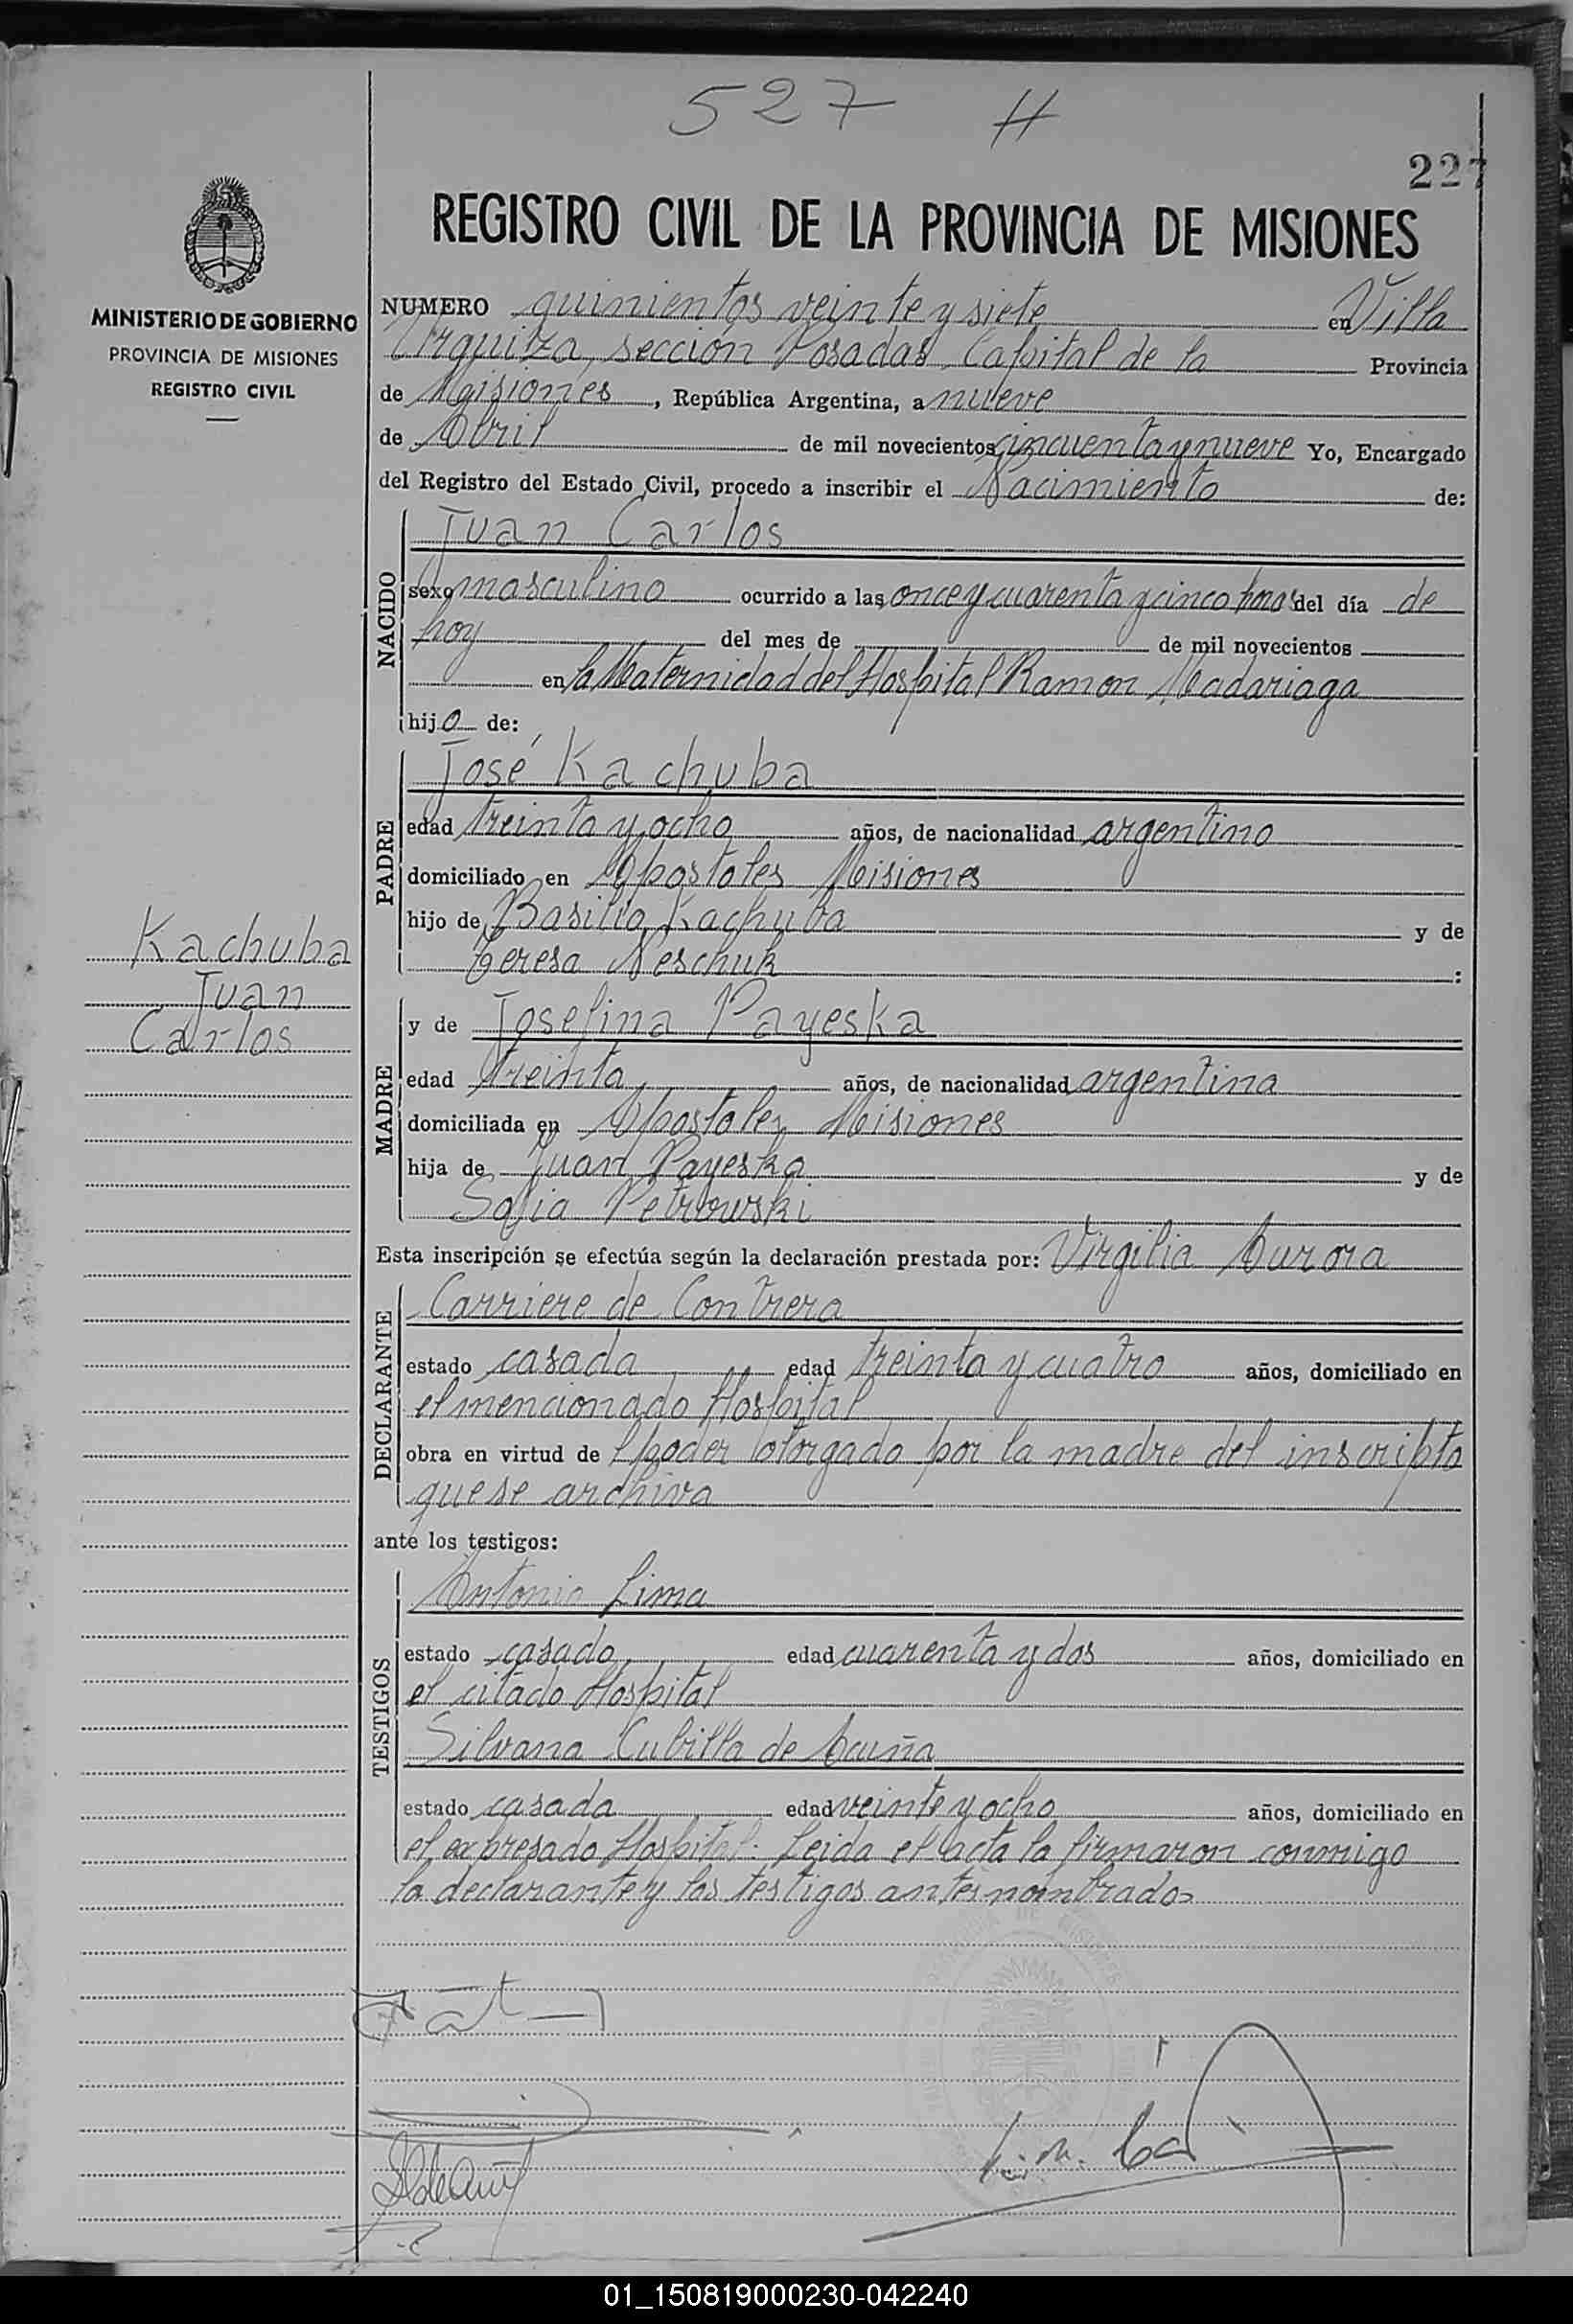 527 H
227
MINISTERIO DE GOBIERNO
PROVINCIA DE MISIONES
REGISTRO CIVIL
REGISTRO CIVIL DE LA PROVINCIA DE MISIONES
NUMERO quinientos veinte y siete en Villa
Urquiza, sección Posadas Capital de la Provincia
de Misiones, República Argentina, a nueve
de Abril de mil novecientos cincuenta y nueve Yo, Encargado
del Registro del Estado Civil, procedo a inscribir el Nacimiento de:
NACIDO
Juan Carlos
sexo masculino ocurrido a las once y cuarenta y cinco horas del día de
hoy del mes de de mil novecientos
en la Maternidad del Hospital Ramon Madariaga
hijo de:
PADRE
José Kachuba
edad treinta y ocho años, de nacionalidad argentino
domiciliado en Apostoles Misiones
hijo de Basilio Kachuba y de
Teresa Neschuk :
Kachuba
Juan
Carlos
MADRE
y de Josefina Payeska
edad treinta años, de nacionalidad argentina
domiciliada en Apostoles Misiones
hija de Juan Payeska y de
Sofia Petrowski
Esta inscripción se efectúa según la declaración prestada por: Virgilia Aurora
DECLARANTE
Carriere de Contrera
estado casada edad treinta y cuatro años, domiciliado en
el mencionado Hospital
obra en virtud de poder otorgado por la madre del inscripto
que se archiva
ante los testigos:
TESTIGOS
Antonio Lima
estado casado edad cuarenta y dos años, domiciliado en
el citado Hospital
Silvana Cubilla de Acuña
estado casada edad veinte y ocho años, domiciliado en
el expresado Hospital. Leida el acta la firmaron conmigo
la declarante y los testigos antes nombrados
01_150819000230-042240